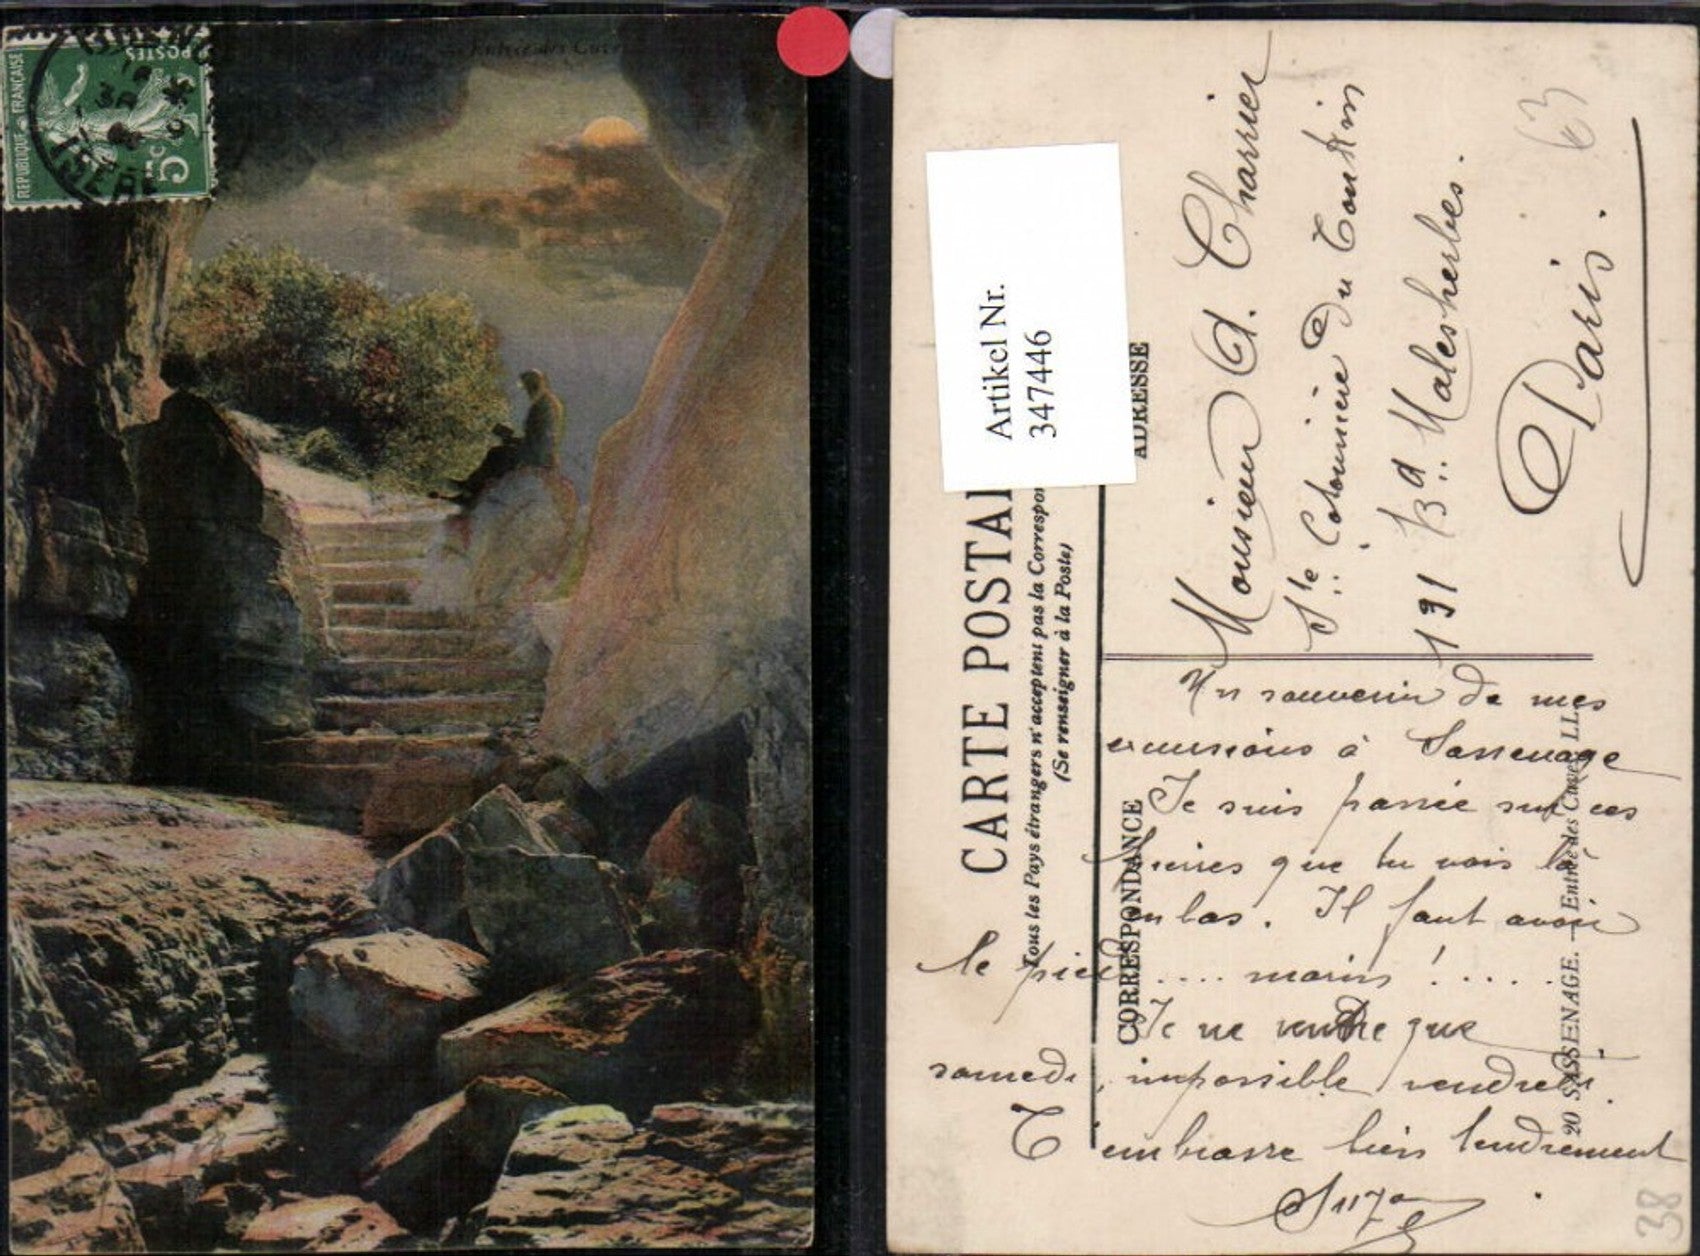 REPUBLIQUE FRANÇAISE
POSTES
5c
ISÈRE
Entrée des Cuves
Artikel Nr.
347446
CARTE POSTAL
Tous les Pays étrangers n'acceptent pas la Correspon
(Se renseigner à la Poste)
ADRESSE
Monsieur A. Charrier
Ste Cotonnière Du Tonkin
191 Bd Malesherbes.
Paris.
63
CORRESPONDANCE
Un souvenir de mes
excursions à Sassenage
Je suis passée sur ces
pierres que tu vois là
en bas. Il faut avoir
le pied .... marin ! ....
Je ne rentre que
samedi, impossible vendredi.
T'embrasse bien tendrement
20 SASSENAGE. — Entrée des Cuves LL.
38